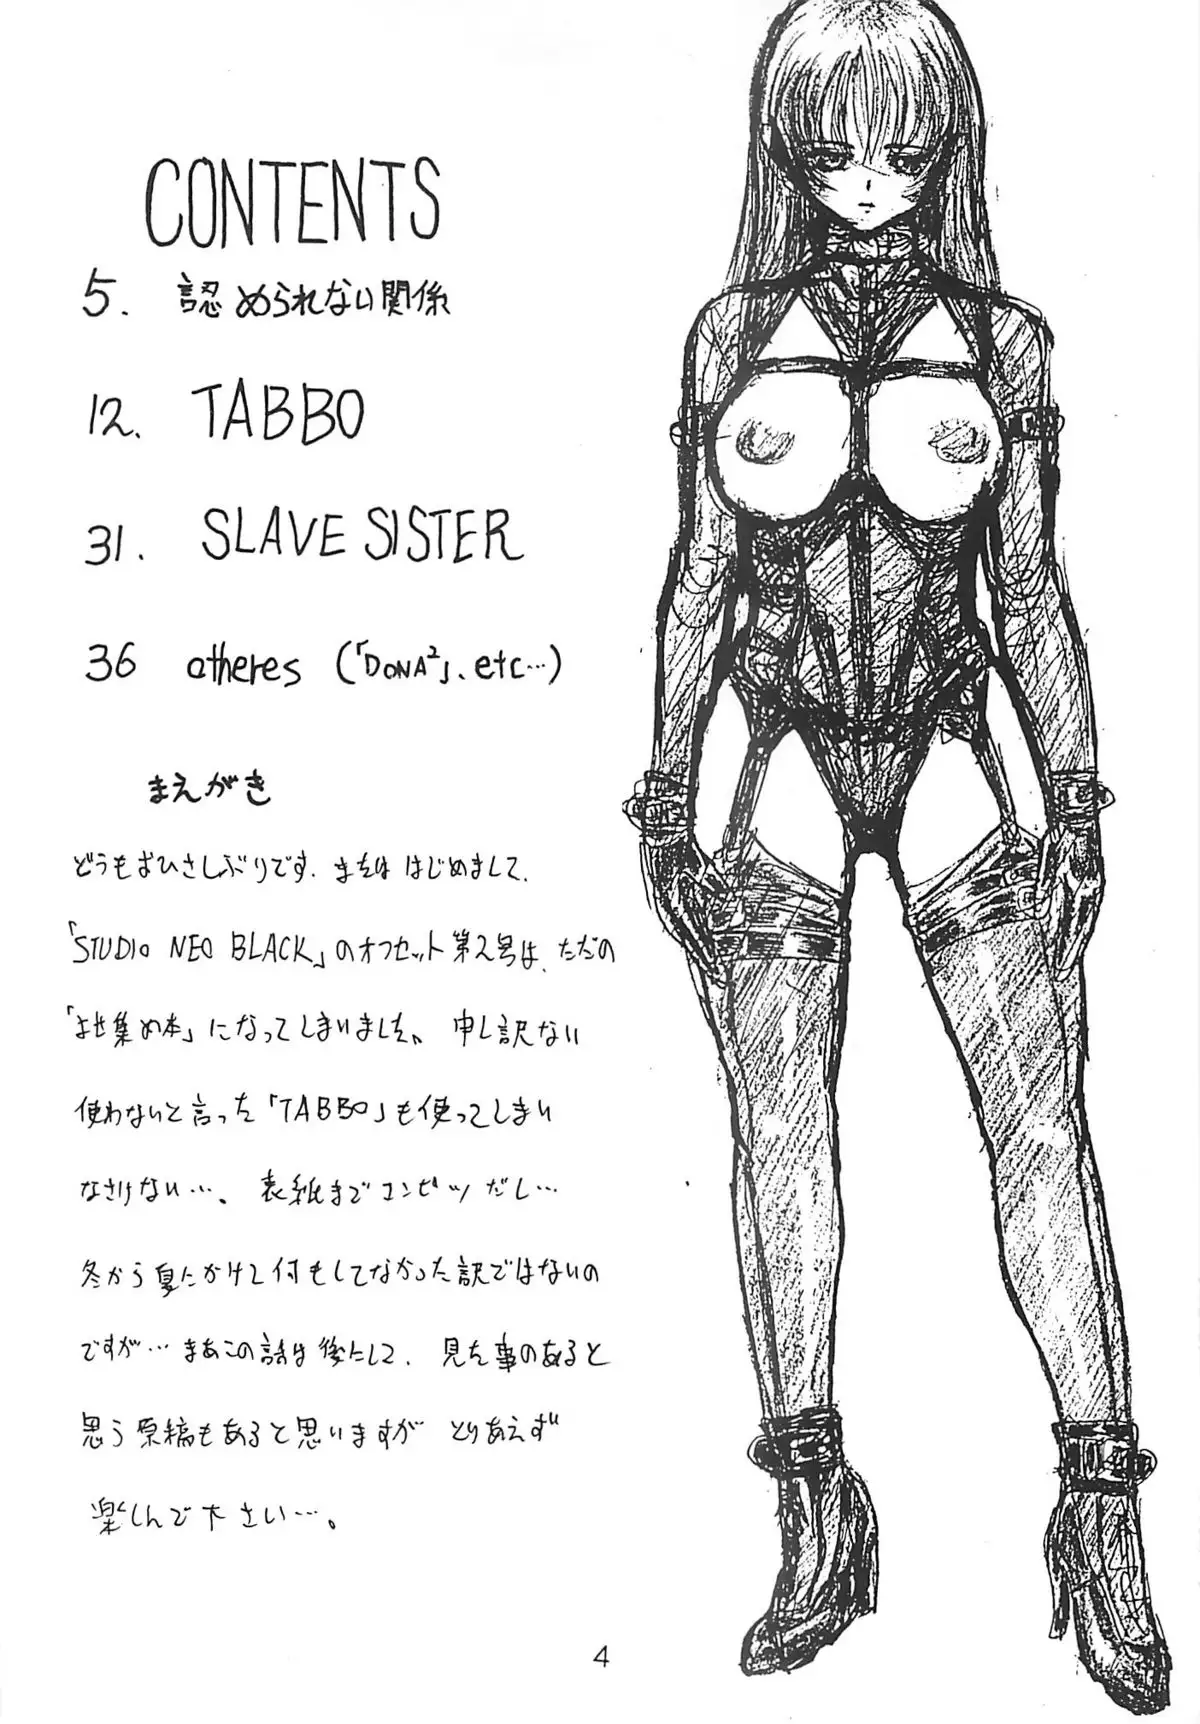 CONTENTS
5. 認められない関係
12. TABBO
31. SLAVE SISTER
36 otheres (「DONA²」、etc…)
まえがき
どうもおひさしぶりです. または はじめまして.
「STUDIO NEO BLACK」のオフセット第2号は、ただの
「よせ集め本」になってしまいました。 申し訳ない
使わないと言った「TABBO」も使ってしまい
なさけない…。 表紙までコンピツだし…
冬から夏にかけて何もしてなかった訳ではないの
ですが… まあこの話は後にして. 見た事のあると
思う原稿もあると思いますが とりあえず
楽しんで下さい…。
4